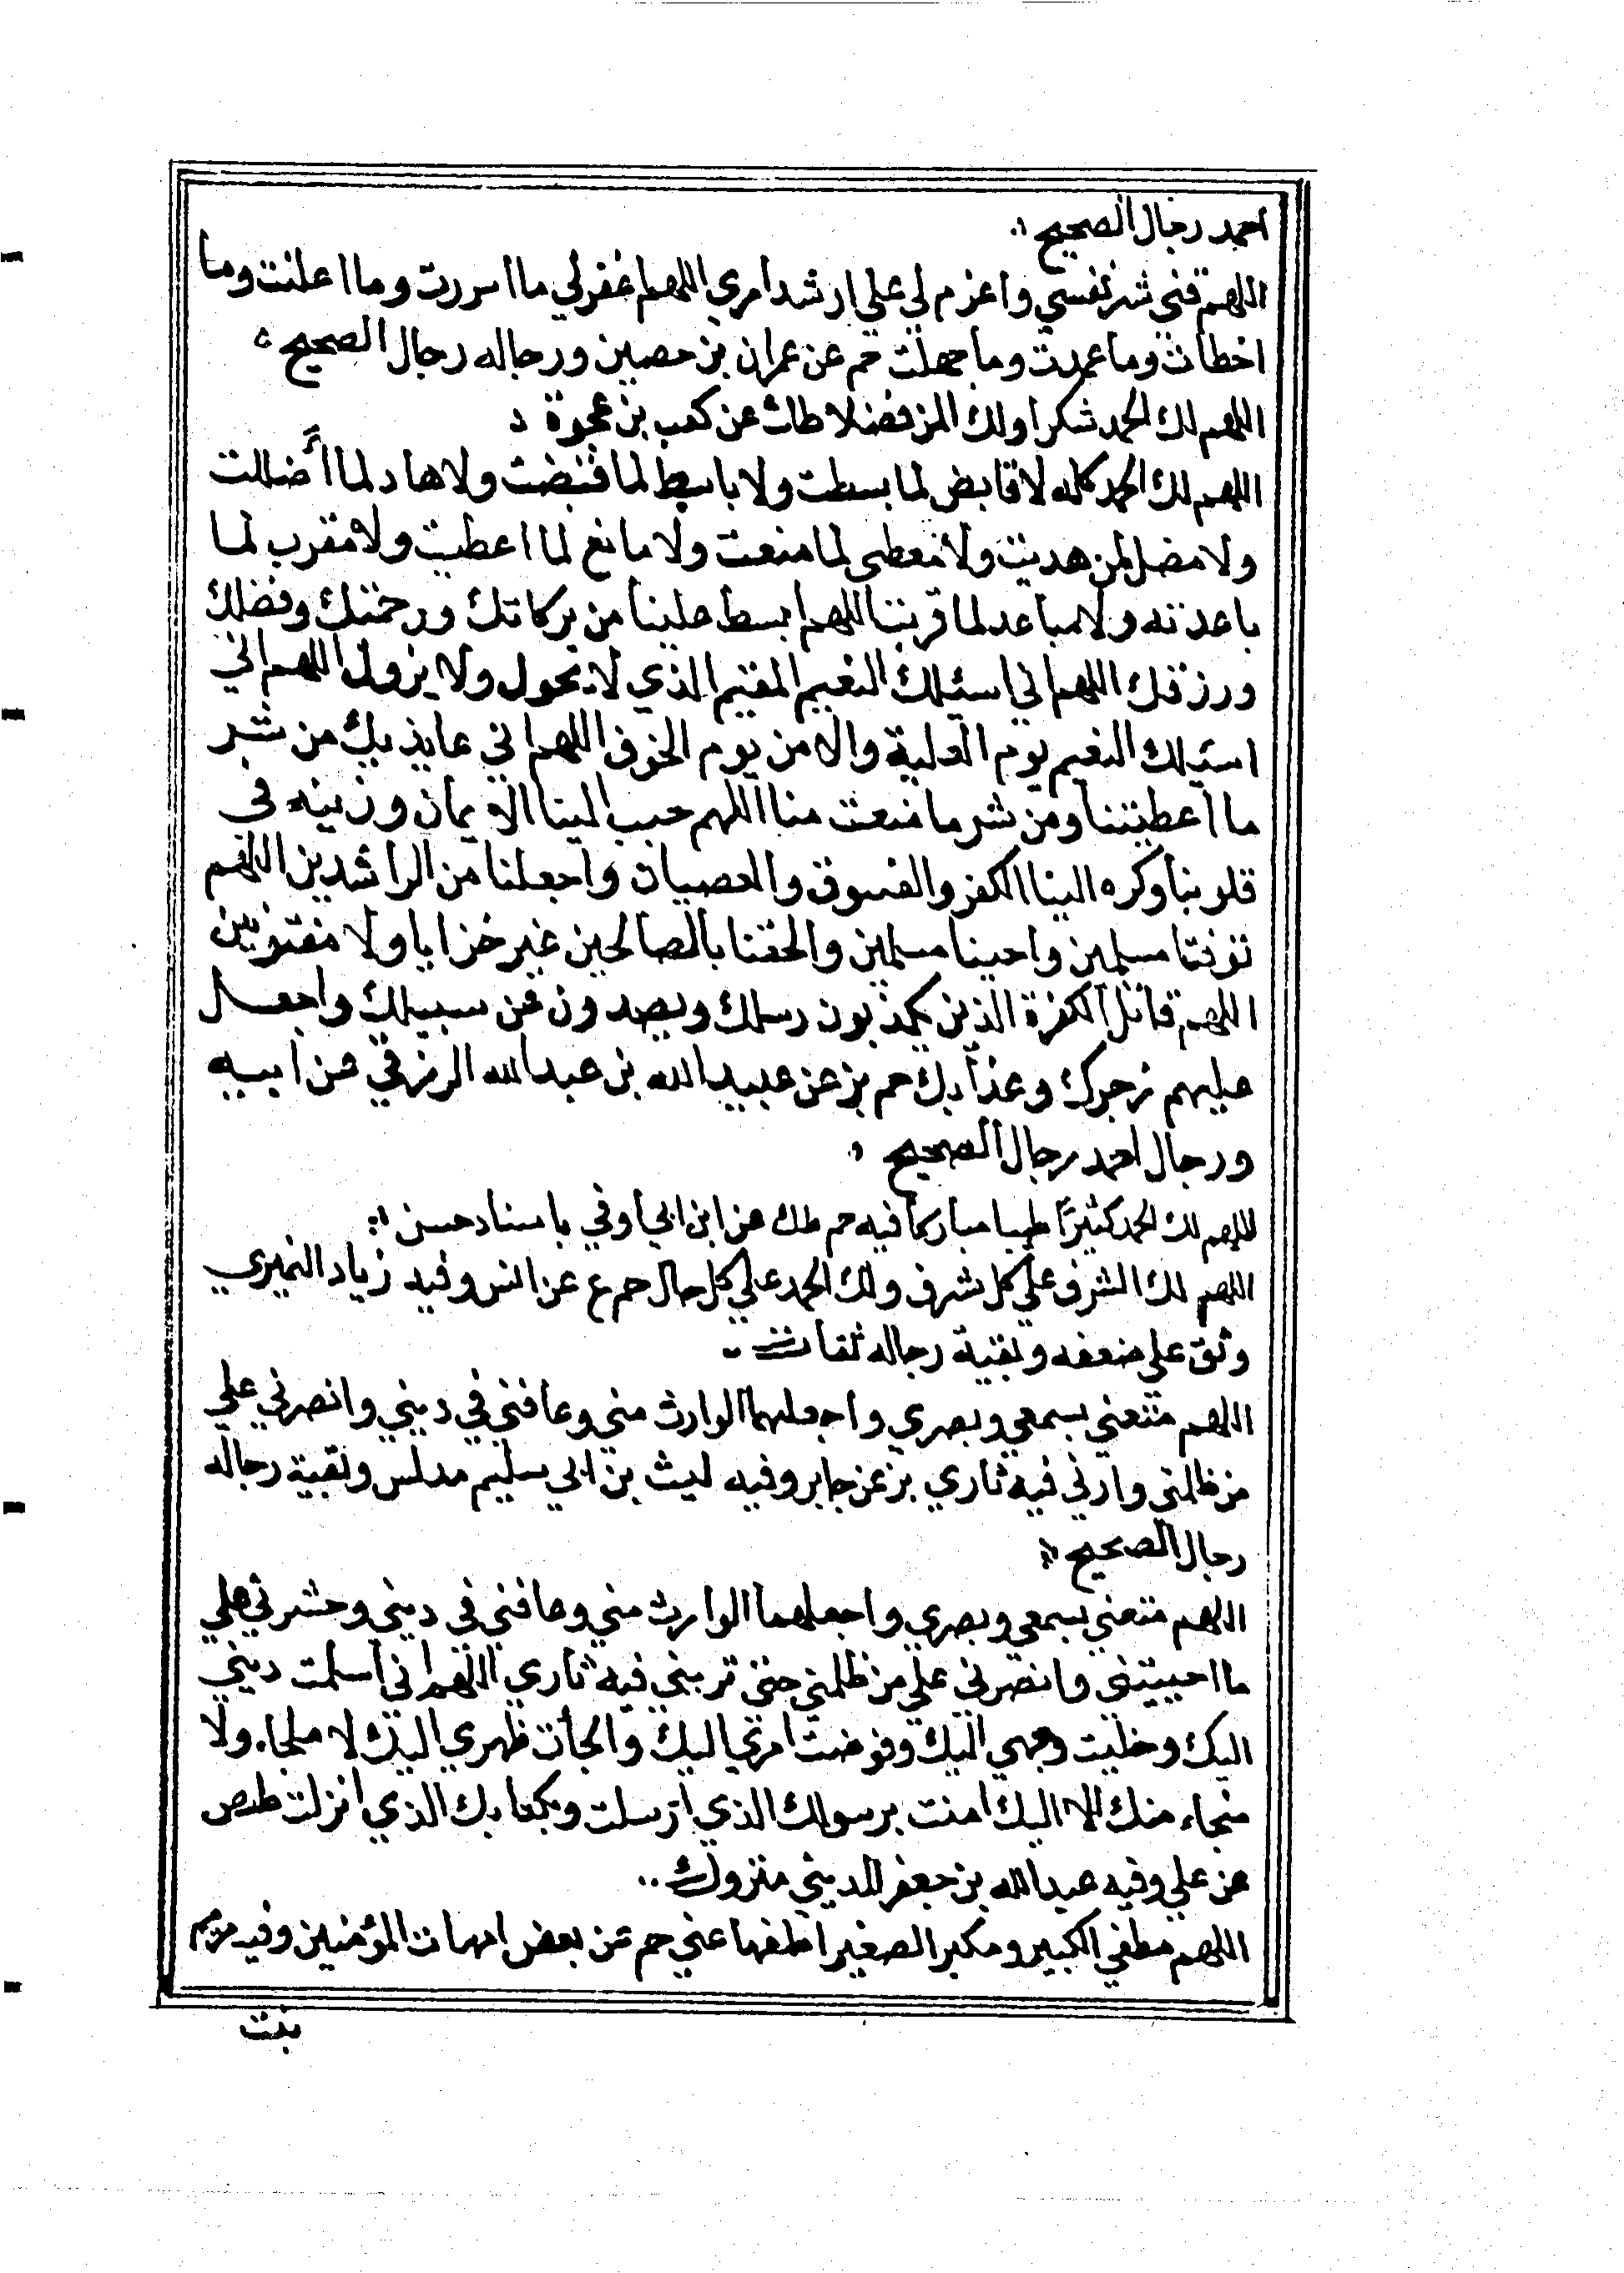 احمد رجال الصحيح
اللهم قني شر نفسي واعزم لي علي ارشد امري اللهم اغفر لي ما اسررت وما اعلنت وما
اخطات وما عمدت وما جهلت حم عن عمران بن حصين ورجاله رجال الصحيح
اللهم لك الحمد شكرا ولك المن فضلا طك عن كعب بن عجرة
اللهم لك الحمد كله لا قابض لما بسطت ولا باسط لما قبضت ولا هاد لما أضللت
ولا مضل لمن هديت ولا معطي لما منعت ولا مانع لما اعطيت ولا مقرب لما
باعدته ولا مباعد لما قربت اللهم ابسط علينا من بركاتك ورحمتك وفضلك
ورزقك اللهم اني اسئلك النعيم المقيم الذي لا يحول ولا يزول اللهم اني
اسئلك النعيم يوم العلية والامن يوم الخوف اللهم اني عايذ بك من شر
ما اعطيتنا ومن شر ما منعت منا اللهم حبب الينا الايمان وزينه في
قلوبنا وكره الينا الكفر والفسوق والعصيان واجعلنا من الراشدين اللهم
توفنا مسلمين واحينا مسلمين والحقنا بالصالحين غير خزايا ولا مفتونين
اللهم قاتل الكفرة الذين يكذبون رسلك ويصدون عن سبيلك واجعل
عليهم زجرك وعذابك حم بز عن عبيد الله بن عبد الله الزرقي عن ابيه
ورجال احمد رجال الصحيح
اللهم لك الحمد كثيرًا طيبا مباركا فيه حم طك عن ابن ابي اوفي باسناد حسن
اللهم لك الشرف علي كل شرف ولك الحمد علي كل حال حم ع عن انس وفيه زياد النميري
وثق علي ضعفه وبقية رجاله ثقات
اللهم متعني بسمعي وبصري واجعلهما الوارث مني وعافني في ديني وانصرني علي
من ظلمني وارني فيه ثاري بز عن جابر وفيه ليث بن ابي سليم مدلس وبقية رجاله
رجال الصحيح
اللهم متعني بسمعي وبصري واجعلهما الوارث مني وعافني في ديني وحشرني علي
ما احييتني وانصرني علي من ظلمني حتي تريني فيه ثاري اللهم اني اسلمت ديني
اليك وخليت وجهي اليك وفوضت امري اليك والجأت ظهري اليك لا ملجاء ولا
منجاء منك الا اليك امنت برسولك الذي ارسلت وبكتابك الذي انزلت طص
عن علي وفيه عبد الله بن جعفر المديني متروك
اللهم مطفي الكبير ومكبر الصغير اطفها عني حم عن بعض امهات المؤمنين وفيه مريم
بنت